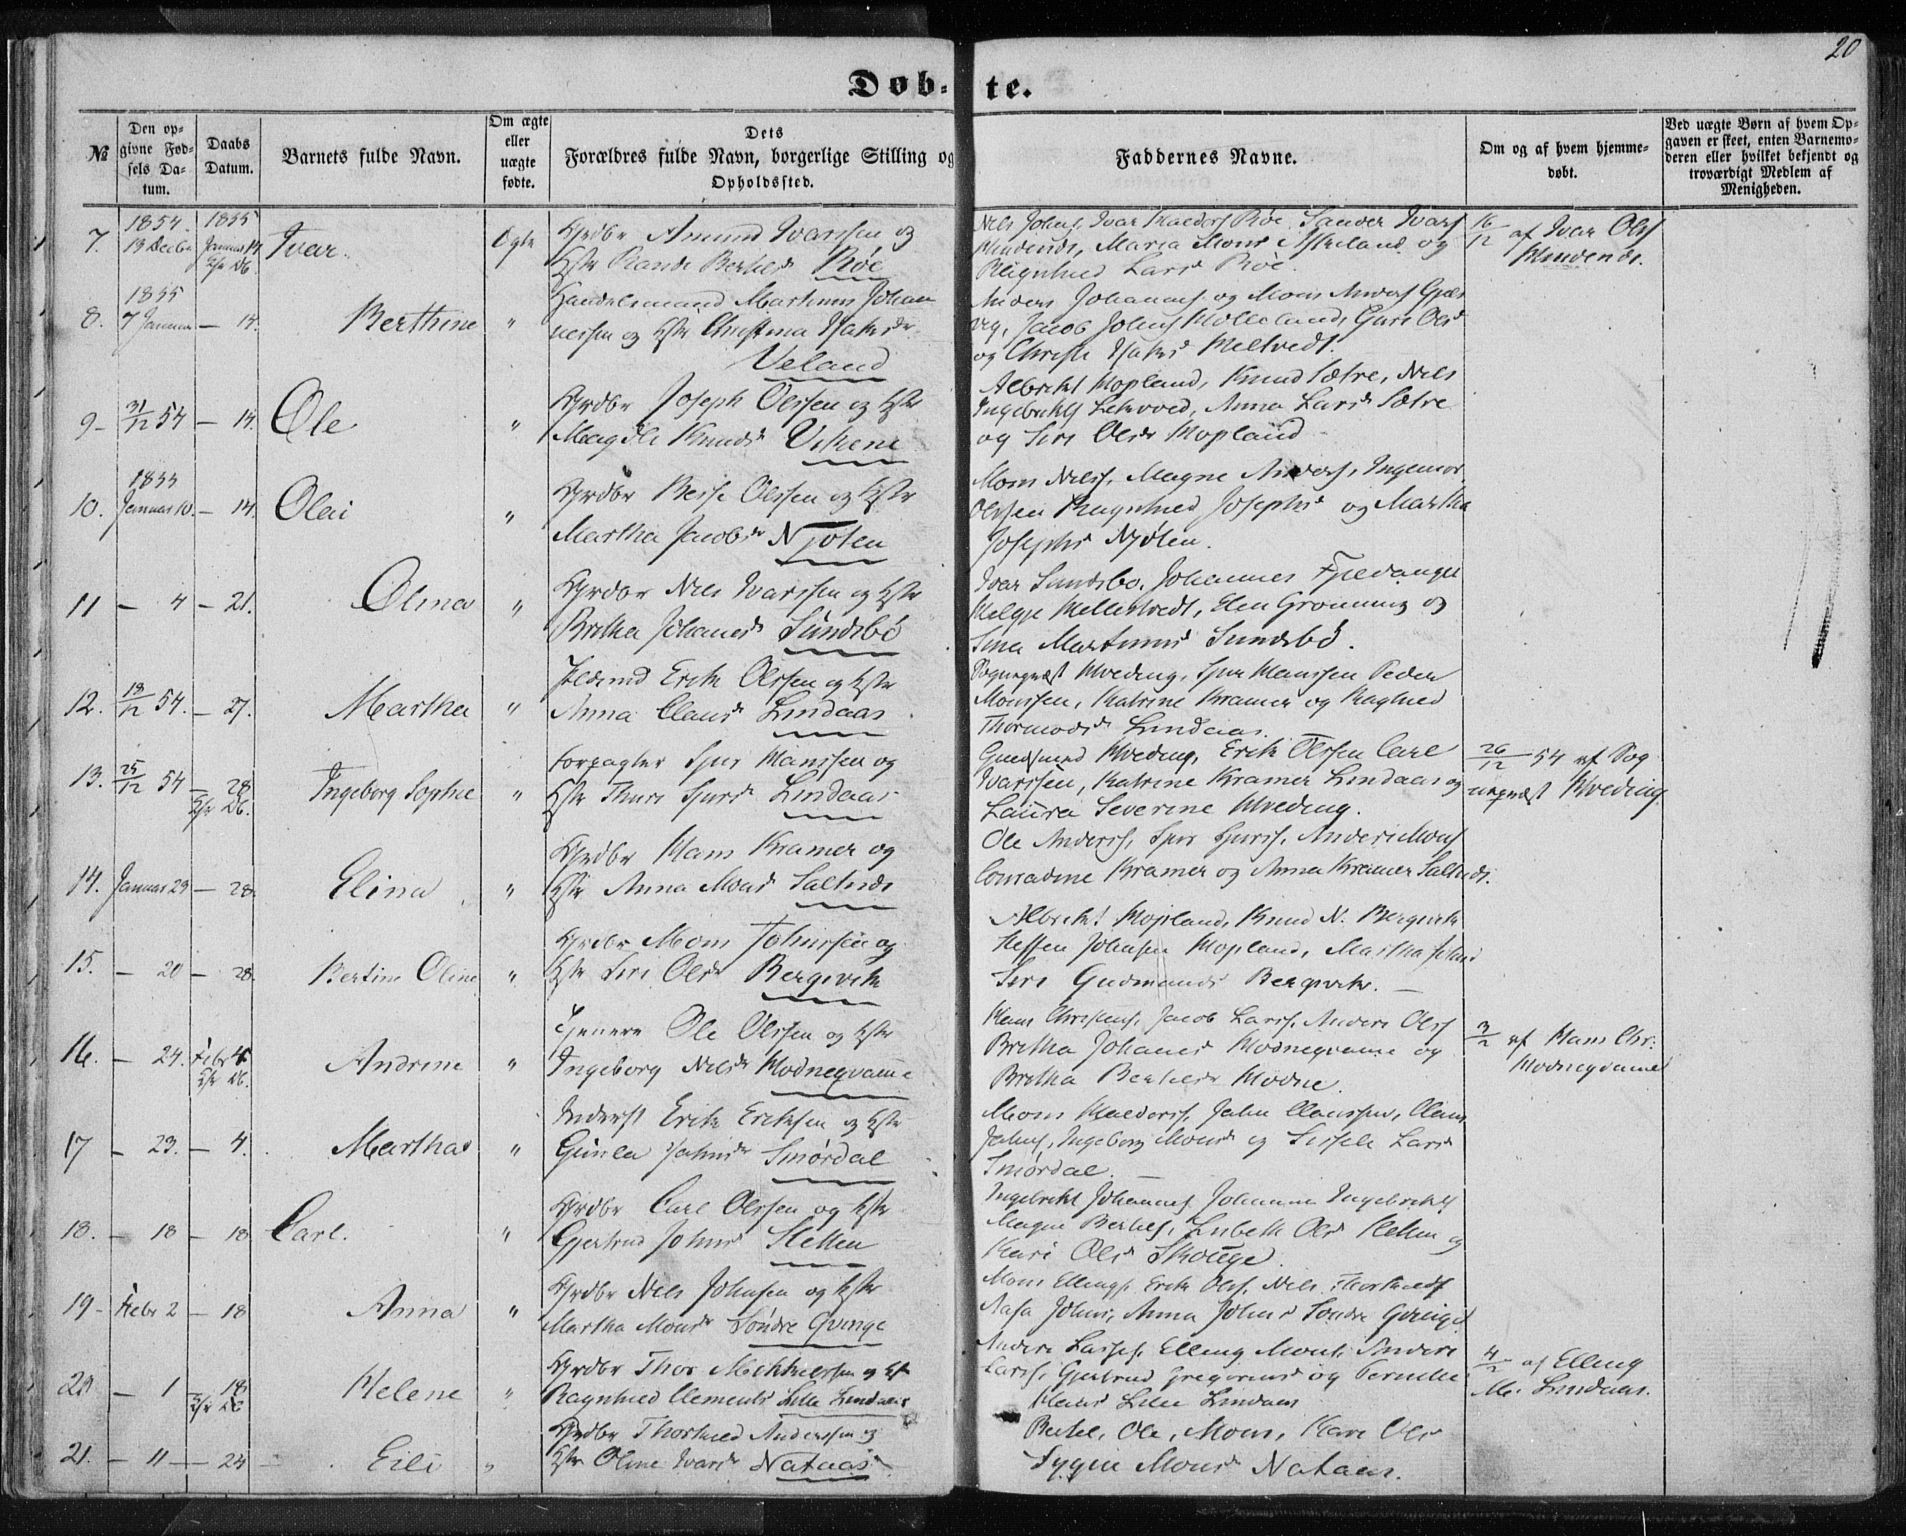 20
Døb-te.
№
Den op-
givne Fød-
sels Da-
tum.
Daabs
Datum.
Barnets fulde Navn.
Om ægte
eller
uægte
fødte.
Dets
Forældres fulde Navn, borgerlige Stilling og
Opholdssted.
Faddernes Navne.
Om og af hvem hjemme-
døbt.
Ved uægte Børn af hvem Op-
gaven er skeet, enten Barnemo-
deren eller hvilket bekjendt og
troværdigt Medlem af
Menigheden.
1854. 1855
7. 13 Decbr Januar 14 Ivar. Ægte Grdbr Amund Ivarssen og
Rande Berhels Røe
Nils Johns, Ivar Haldors Røe, Sander Ivars
Hindenes, Maria Mons Askeland og
Lars Røe.
16/12 af Ivar Ols
Hindenes.
1855
8. 7 Januar – 14. Berthine " Handelsmand Martinus Johan-
nessen og Hstr Christina Isaks
Veland
Anders Johannes og Mons Anders
Jacob Johns Molleland, Guri Ols
og Christi Isaks Meltvedt.
9 – 31/12 54 – 14. Ole " Grdbr Joseph Olssen og Hstr
Knuds Vikene
Albrekt Hopland, Knud Sætre, Nils
Anna Lars Sætre
og Siri Ols Hopland
1855
10. Januar 10. – 14. Olai " Grdbr Olssen og Hstr
Martha Jacobs Njøten
Mons Nilss, Magne Anders, Ingemor
Olssen Ragnhild Josephs og Martha
Josephs Njøten.
11 – 4 – 21. Olina " Grdbr Nils Ivarssen og Hstr
Britha Johans Sundsbø
Ivar Sundsbo, Johannes Fjeldanger
Helge Mellestvedt, Elen Gronning og
Sina Martinus Sundsbø.
12. 13/12 54. – 27. Martha " Erik Olssen og Hstr
Anna Claus Lindaas.
Sogneprest Hveding, Sjur Hanssen Peder
Monssen, Katrine Kramer og Raghild
Thormods Lindaas.
13. 25/12 54 – 28 Ingeborg Sophie " Forpagter Sjur Hanssen og
Hstr Thuri Sjurs Lindaas
Hveding, Erik Olssen Carl
Ivarssen, Katrine Kramer Lindaas og
Laura Severine Hveding.
26/12 54 af Sog
neprest Hveding.
14. Januar 23 – 28. Elina " Grdbr Hans Kramer og
Hstr Anna Mons Saltnes
Ole Anderss, Sjur Sjurss, Anders Mons
Conradine Kramer og Anna Kramer Saltnes.
15. – 20 – 28. Bertine Oline " Grdbr Mons Johnssen og
Hstr Siri Ols Bergsvik
Albrekt Hopland, Knud N. Bergsvik
Steffen Johnsen Hopland, Martha Johns
Siri Gudmunds Bergsvik. –
16. – 24. Febr 4 Andrine " Tjener Ole Olssen og Hstr
Ingeborg Nils Hodnegvame
Hans Christens, Jacob Larss, Anders Ols
Britha Johans Hodnegvame og
Britha Berhels Hodne.
3/2 af Hans Chr.
Hodnegvame
17 – 23. – 4. Martha " Inderst Erik Eriksen og Hstr
Gunla Johns Smørdal
Mons Haldorss. John Claussen, Claus
Johns, Ingeborg Mons og Sissele Lars
Smørdal.
18. – 18 – 18 Carl. " Grdbr Carl Olssen og Hstr
Gjertrud Johns Sletten
Ingebrikt Johannes, Johanna Ingebrikts
Magne Berhels, Lisbeth Ols Sletten og
Kari Ols Skouge.
19 – Febr 2 – 18 Anna " Grdbr Nils Johnsen og Hstr
Martha Mons Søndre Qvinge
Mons Ellings, Erik Ols, Nils
Aasa Johns, Anna Johns Søndre Qvinge
20 – 1 18 Helene " Grdbr Thor Mikkelssen og Hstr
Ragnhild Clements Lille Lindaas
Anders Lasses, Elling Mons, Anders
Larss, Gjertrud Gregorius og Pernille
Lille Lindaas
4/2 af Elling
M. Lindaas.
21. – 11 – 24 – Eili " Grdbr Anderssen og
Hstr Oline Ivars Nataas
Berhel, Ole, Mons, Kari Ols
Mons Nataas.